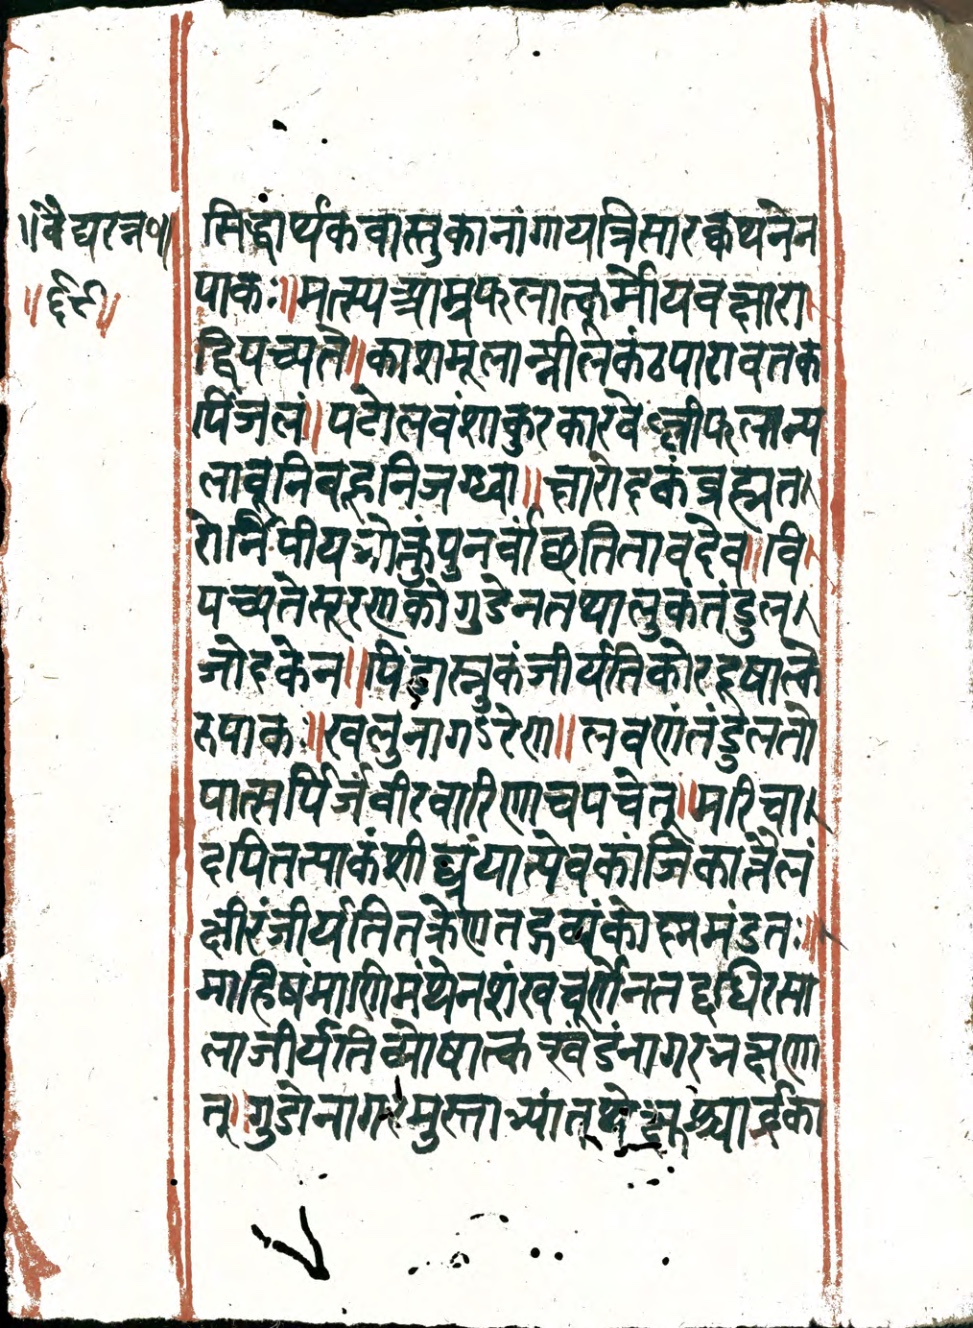 ॥वैद्यरत्न॰॥
॥६९॥
सिद्धार्थकवास्तुकानांगायत्रिसारक्वथनेन
पाकः॥मत्स्यआम्रफलात्कूर्मोयवक्षारा
द्विपच्यते॥काशमूलान्नीलकंठपारावतक
पिंजलं॥पटोलवंशाकुरकारवेल्लीफलान्य
लाबूनिबहूनिजग्ध्वा॥क्षारोदकंब्रह्मत
रोर्निपीयभोक्तुंपुनर्वांछतितावदेव॥वि
पच्यतेसूरणकोगुडेनतथालुकंतंडुल
जोदकेन॥पिंडालुकंजीर्यतिकोरदूषात्कसे
रुपाकः॥खलुनागरेण॥लवणंतंडुलतो
यात्सर्पिर्जंवीरवारिणाचपचेत्॥मरिचा
दपितत्पाकंशीघ्रंयात्येवकांजिकात्तैलं
क्षीरंजीर्यतितक्रेणतद्गव्यंकोष्णमंडतः॥
माहिषंमाणिमंथेनशंखचूर्णेनतद्दधिरसा
लाजीर्यतिव्योषात्कखंडंनागरभक्षणा
त्॥गुडोनागरमुस्ताभ्यांत